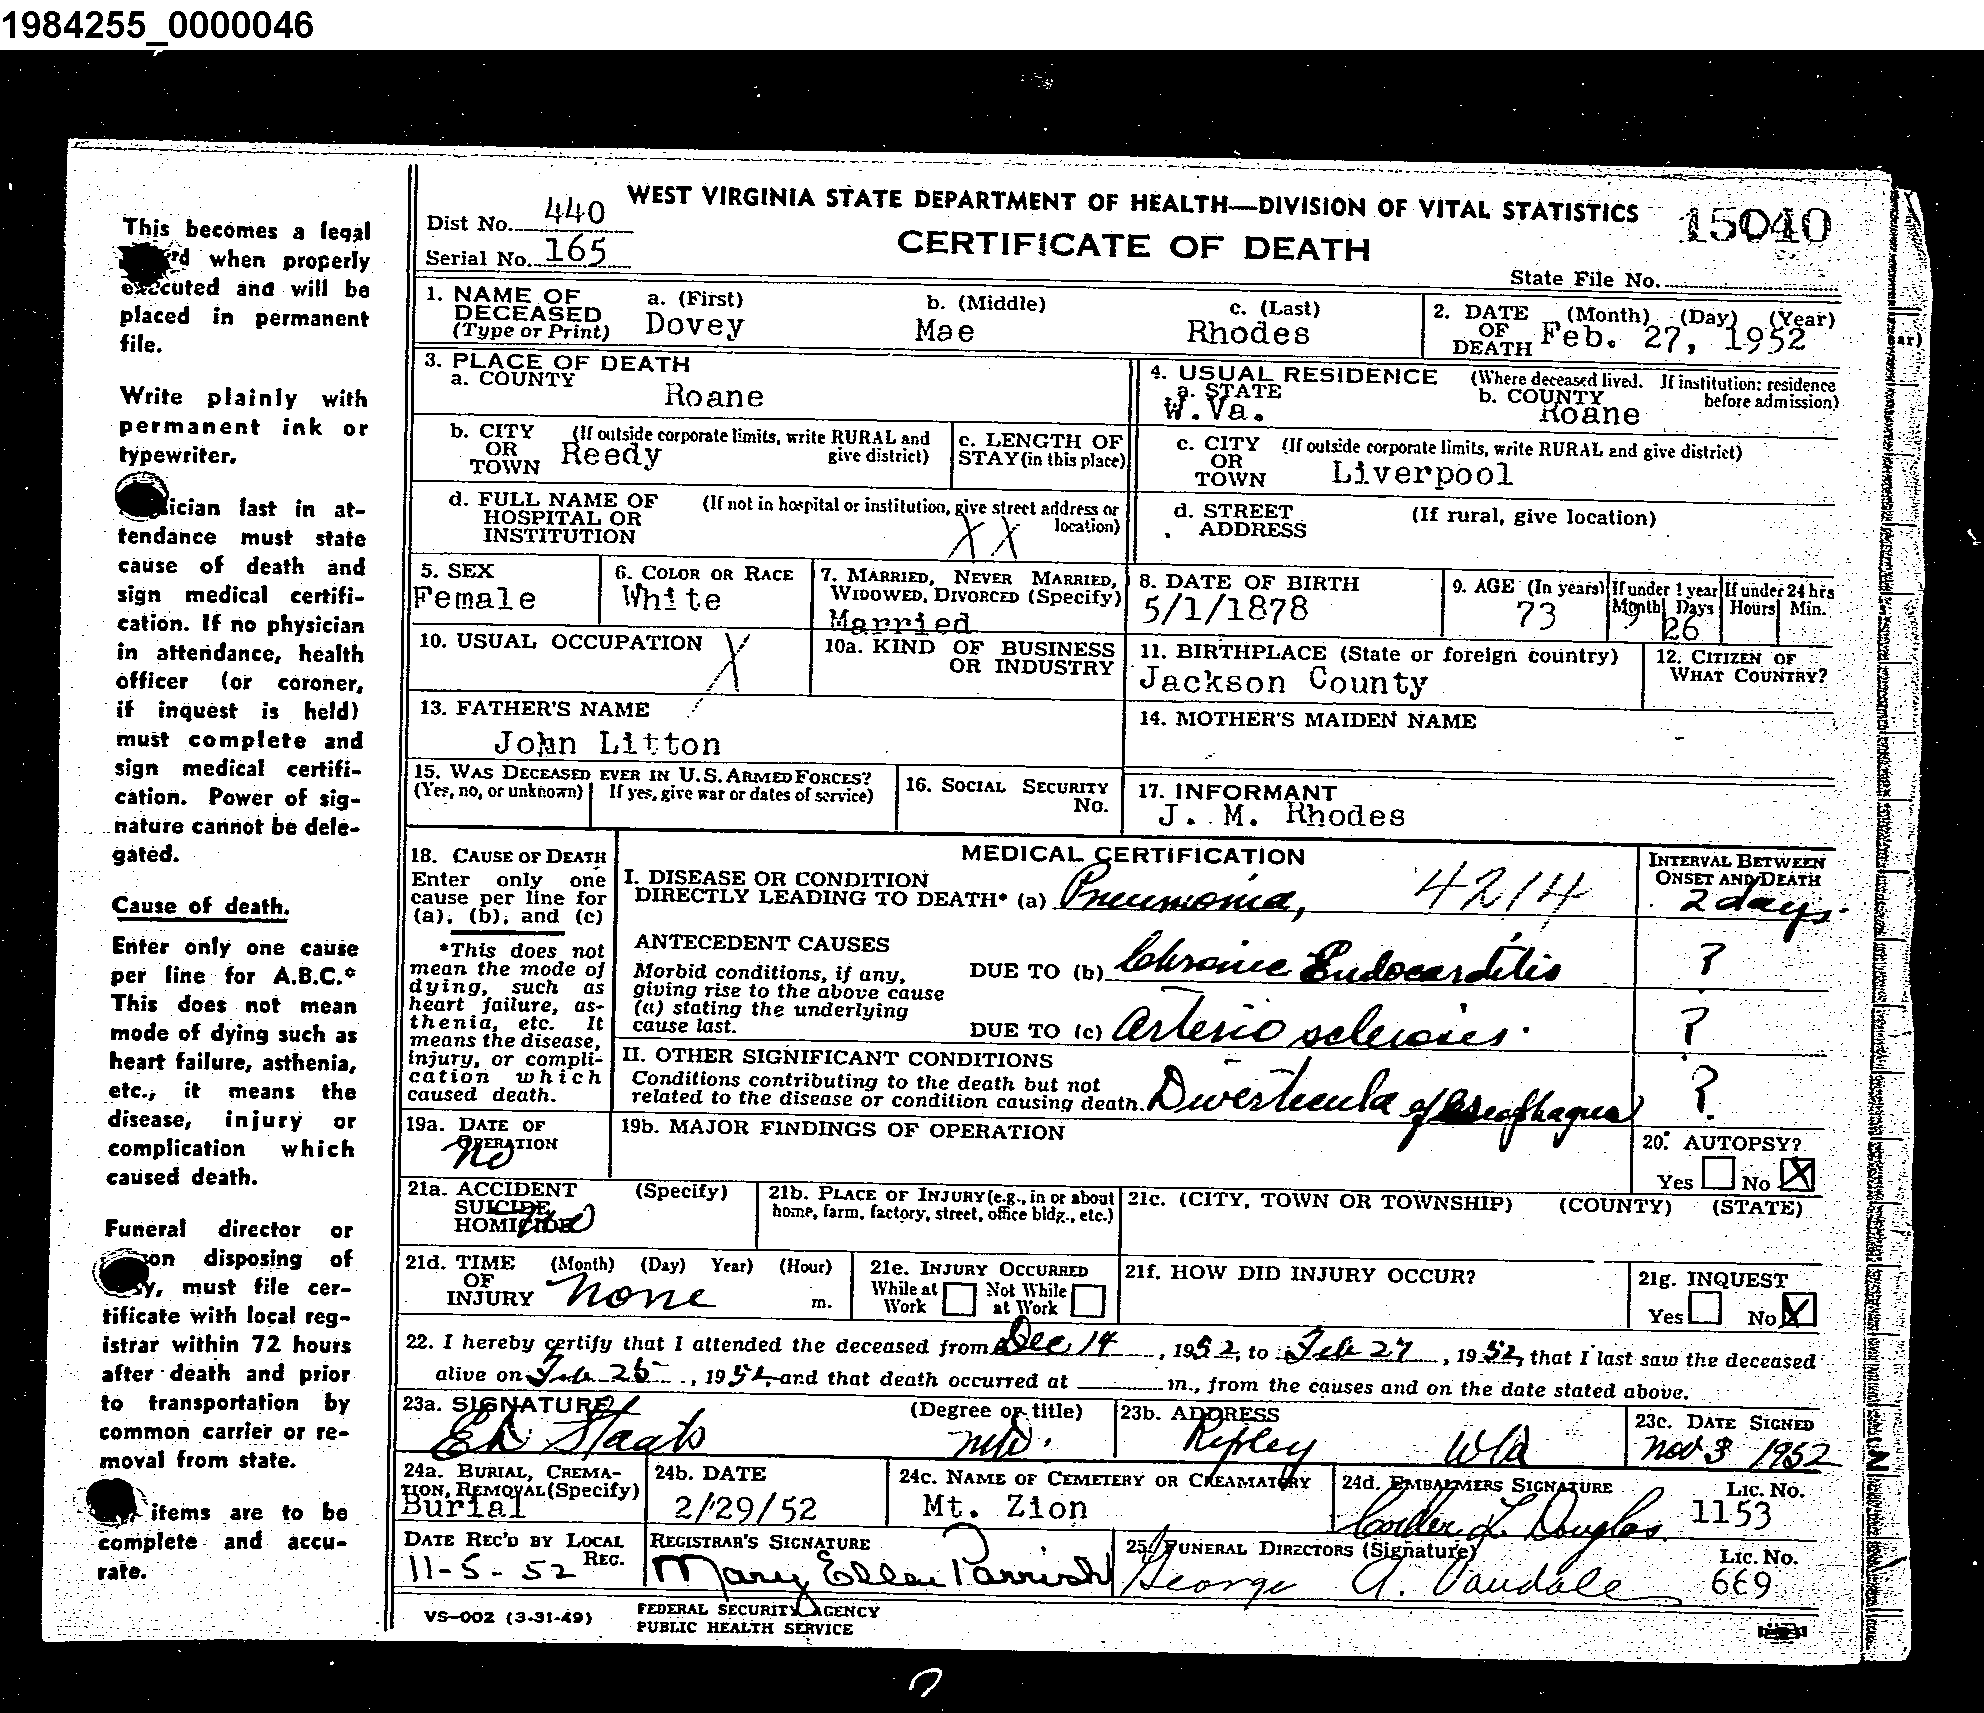 1984255_0000046
This becomes a legal
rd when properly
executed and will be
placed in permanent
file.
Write plainly with
permanent ink or
typewriter.
ician last in at-
tendance must state
cause of death and
sign medical certifi-
cation. If no physician
in attendance, health
officer (or coroner,
if inquest is held)
must complete and
sign medical certifi-
cation. Power of sig-
nature cannot be dele-
gated.
Cause of death.
Enter only one cause
per line for A.B.C.*
This does not mean
mode of dying such as
heart failure, asthenia,
etc., it means the
disease, injury or
complication which
caused death.
Funeral director or
son disposing of
y, must file cer-
tificate with local reg-
istrar within 72 hours
after death and prior
to transportation by
common carrier or re-
moval from state.
items are to be
complete and accu-
rate.
WEST VIRGINIA STATE DEPARTMENT OF HEALTH—DIVISION OF VITAL STATISTICS
15040
Dist No. 440
Serial No. 165
CERTIFICATE OF DEATH
State File No.
1. NAME OF DECEASED (Type or Print)
a. (First) Dovey
b. (Middle) Mae
c. (Last) Rhodes
2. DATE OF DEATH (Month) (Day) (Year) Feb. 27, 1952
3. PLACE OF DEATH
a. COUNTY Roane
4. USUAL RESIDENCE (Where deceased lived. If institution: residence before admission)
a. STATE W.Va.
b. COUNTY Roane
b. CITY OR TOWN (If outside corporate limits, write RURAL and give district) Reedy
c. LENGTH OF STAY (in this place)
c. CITY OR TOWN (If outside corporate limits, write RURAL and give district) Liverpool
d. FULL NAME OF HOSPITAL OR INSTITUTION (If not in hospital or institution, give street address or location) XX
d. STREET ADDRESS (If rural, give location)
5. SEX Female
6. COLOR OR RACE White
7. MARRIED, NEVER MARRIED, WIDOWED, DIVORCED (Specify) Married
8. DATE OF BIRTH 5/1/1878
9. AGE (In years) 73
If under 1 year Month 9 Days 26
If under 24 hrs Hours Min.
10. USUAL OCCUPATION X
10a. KIND OF BUSINESS OR INDUSTRY
11. BIRTHPLACE (State or foreign country) Jackson County
12. CITIZEN OF WHAT COUNTRY?
13. FATHER'S NAME John Litton
14. MOTHER'S MAIDEN NAME -
15. WAS DECEASED EVER IN U.S. ARMED FORCES?
(Yes, no, or unknown) If yes, give war or dates of service)
16. SOCIAL SECURITY No.
17. INFORMANT J. M. Rhodes
18. CAUSE OF DEATH
Enter only one
cause per line for
(a), (b), and (c)
*This does not
mean the mode of
dying, such as
heart failure, as-
thenia, etc. It
means the disease,
injury, or compli-
cation which
caused death.
MEDICAL CERTIFICATION
INTERVAL BETWEEN ONSET AND DEATH
I. DISEASE OR CONDITION
DIRECTLY LEADING TO DEATH* (a) Pneumonia, 4214 2 days.
ANTECEDENT CAUSES
Morbid conditions, if any,
giving rise to the above cause
(a) stating the underlying
cause last.
DUE TO (b) Chronic Endocarditis ?
DUE TO (c) Arterio sclerosis. ?
II. OTHER SIGNIFICANT CONDITIONS
Conditions contributing to the death but not
related to the disease or condition causing death. Diverticula of Eseophagus ?
19a. DATE OF OPERATION No
19b. MAJOR FINDINGS OF OPERATION
20. AUTOPSY? Yes No X
21a. ACCIDENT SUICIDE HOMICIDE (Specify) No
21b. PLACE OF INJURY (e.g., in or about home, farm, factory, street, office bldg., etc.)
21c. (CITY, TOWN OR TOWNSHIP) (COUNTY) (STATE)
21d. TIME OF INJURY (Month) (Day) Year) (Hour) m. None
21e. INJURY OCCURRED While at Work Not While at Work
21f. HOW DID INJURY OCCUR?
21g. INQUEST Yes No X
22. I hereby certify that I attended the deceased from Dec 14, 1952, to Feb 27, 1952, that I last saw the deceased
alive on Feb 25, 1952, and that death occurred at m., from the causes and on the date stated above.
23a. SIGNATURE Staats (Degree or title) MD.
23b. ADDRESS Ripley WVa
23c. DATE SIGNED Nov 3 1952
24a. BURIAL, CREMA-TION, REMOVAL (Specify) Burial
24b. DATE 2/29/52
24c. NAME OF CEMETERY OR CREAMATORY Mt. Zion
24d. EMBALMERS SIGNATURE L. Douglas Lic. No. 1153
DATE REC'D BY LOCAL REG. 11-5-52
REGISTRAR'S SIGNATURE Mary Ellen Parrish
25. FUNERAL DIRECTORS (Signature) George A. Vandale Lic. No. 669
VS-002 (3-31-49)
FEDERAL SECURITY AGENCY
PUBLIC HEALTH SERVICE